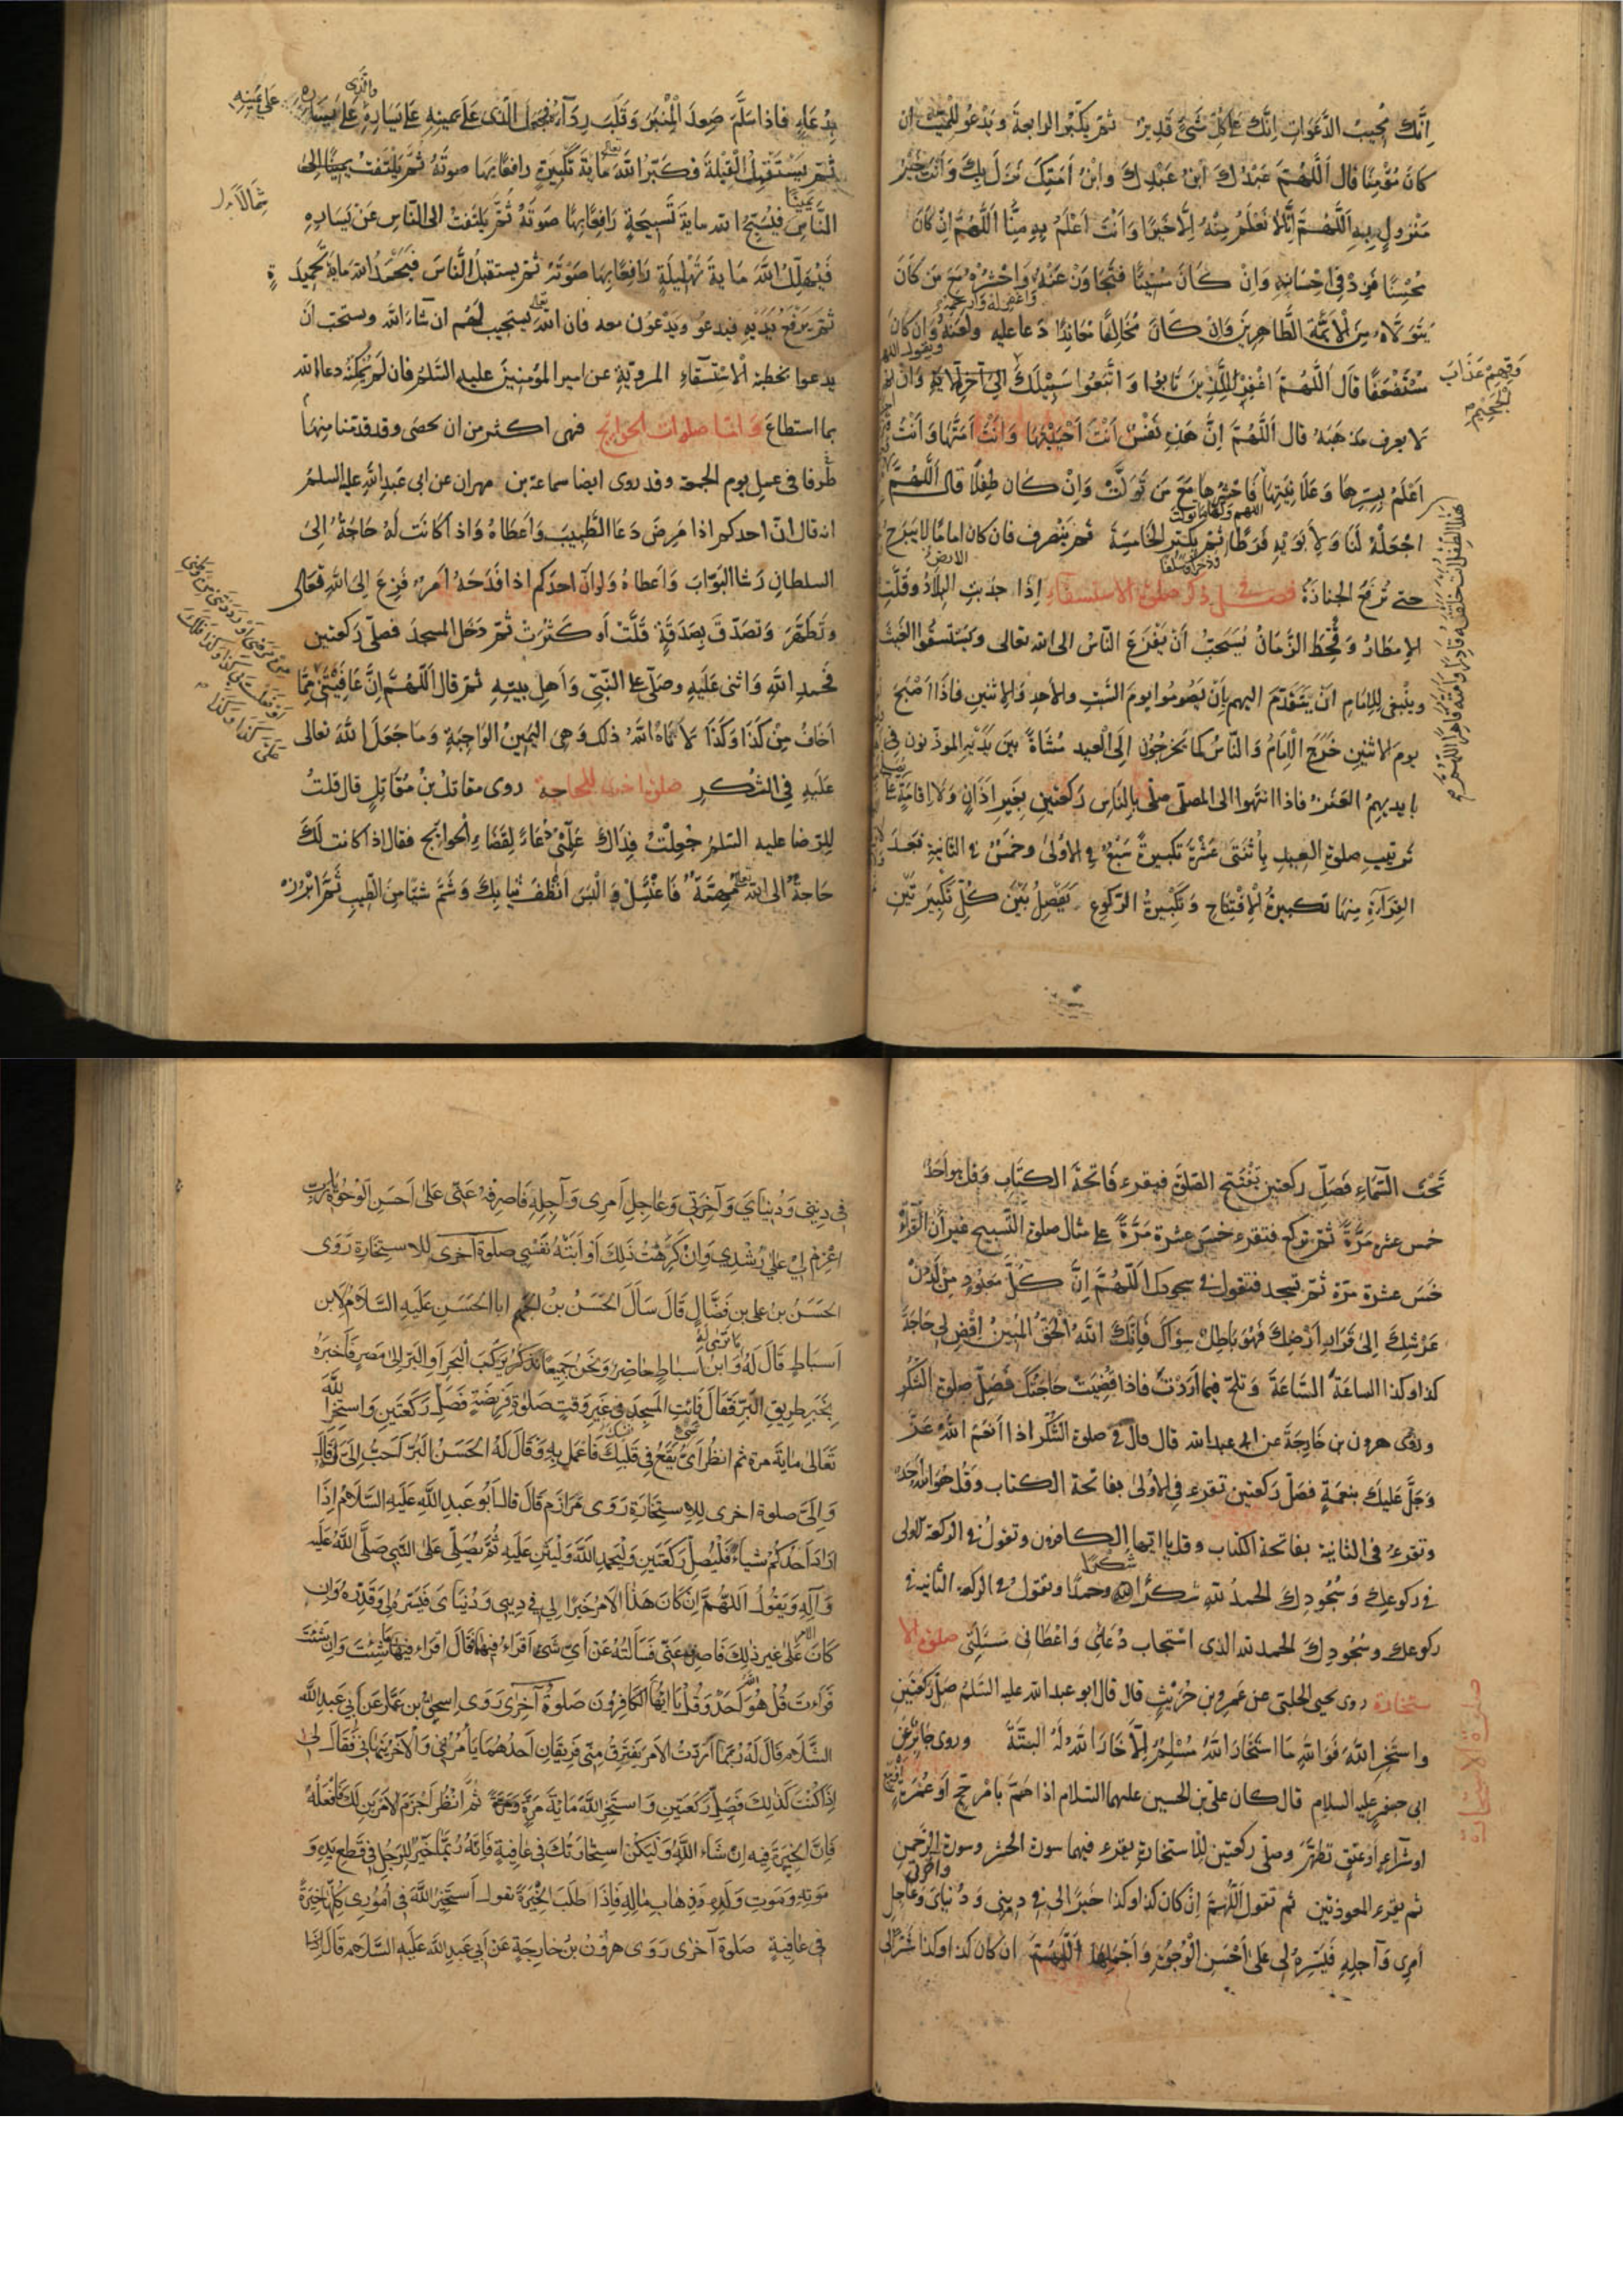 اِنَّكَ مُجِيبُ الدَّعَوَاتِ اِنَّكَ عَلَى كُلِّ شَيْءٍ قَدِيرٌ ثم يكبّر الرابعةَ ويَدْعو للميّت ان
كانَ مُؤْمِنًا قال اَللّهُمَّ عَبْدُكَ ابْنُ عَبْدِكَ وابْنُ اَمَتِكَ نَزَلَ بِكَ وَاَنْتَ خَيْرُ
مَنْزُولٍ بِهِ اَللّهُمَّ اِنَّا لا نَعْلَمُ مِنْهُ اِلَّا خَيْرًا وَاَنْتَ اَعْلَمُ بِهِ مِنَّا اَللّهُمَّ اِنْ كَانَ
مُحْسِنًا فَزِدْ فِي اِحْسَانِهِ وَاِنْ كَانَ مُسِيئًا فَتَجَاوَزْ عَنْهُ وَاحْشُرْهُ مَعَ مَنْ كَانَ
وَاغْفِرْ لَهُ وَارْحَمْهُ
يَتَوَلَّاهُ مِنَ الْاَئِمَّةِ الطَّاهِرِينَ وَاِنْ كَانَ مُخَالِفًا مُعَانِدًا دَعا عليهِ ولَعَنَهُ وَاِنْ كانَ
مُسْتَضْعَفًا قَالَ اَللّهُمَّ اغْفِرْ لِلَّذِينَ تَابُوا وَاتَّبَعُوا سَبِيلَكَ اِلَى آخِرِ الآيةِ وَاِنْ
وَقِهِمْ عَذَابَ
الْجَحِيمِ
لا يعرف مذهَبَهُ قال اَللّهُمَّ اِنَّ هَذِهِ نَفْسٌ اَنْتَ اَحْيَيْتَهَا وَاَنْتَ اَمَتَّهَا وَاَنْتَ
اَعْلَمُ بِسِرِّهَا وَعَلَانِيَتِهَا فَاحْشُرْهَا مَعَ مَنْ تَوَلَّتْ وَاِنْ كانَ طِفْلًا قال اَللّهُمَّ
اجْعَلْهُ لَنَا وَلِاَبَوَيْهِ فَرَطًا ثم يكبّر الخَامِسَةَ ثم ينصرف فان كان اماما لا يبرح
حتى تُرْفَعَ الجنازةُ فصل في ذكر صلوة الاستسقاء اِذَا جدبت البِلادُ وقَلَّتِ
الامطارُ وقُحِطَ الزَّمَانُ يُسْتَحَبُّ اَنْ يَفْزَعَ النّاسُ الى الله تعالى ويَسْتَسْقُوا الغَيْثَ
وينْبغي للامامِ انْ يَتَقَدَّمَ اليهم بِاَنْ يَصُومُوا يومَ السَّبْتِ والاحدِ والاثنين فاذا اَصْبَحَ
يومَ الاثنينِ خَرَجَ الْاِمَامُ وَالنّاسُ كما يَخرجُونَ اِلَى الْعيد مُشَاةً بينَ يَدَيْهِ الموذّنون في
بايديهِمُ العَنَزُ فاذا انتهوا الى المصلّى صلّى بِالنَاسِ رَكعتينِ بِغَيْرِ اَذَانٍ وَلَا اِقَامَةٍ على
ترتيب صلوةِ العيدِ بِاثْنَتَي عَشْرَةَ تكبيرةً سَبْعٌ في الاُولى وخمسٌ في الثانيةِ بَعْدَ
القِرَاءَةِ مِنهَا تكبيرةُ الْاِفْتِتَاحِ وَتَكْبِيرَةُ الرّكوعِ يَفْصِلُ بَيْنَ كُلِّ تَكْبِيرَتَيْنِ
بِدُعَاءٍ فاذا سَلَّمَ صَعِدَ الْمِنْبَرَ وَقَلَبَ رِدَآءَهُ فَجَعَلَ الَّذي عَلَى يمينِهِ عَلَى يَسَارِهِ
ثم يَسْتَقْبِلُ الْقِبْلَةَ فكَبَّرَ اللهَ تعالى مايةَ تَكْبِيرَةٍ رافعًا بها صوتَهُ ثُمَّ يَلْتَفِتُ يمينًا الى
النَّاسِ فيُسَبِّحُ الله مايةَ تَسْبِيحَةٍ رَافِعًا بِهَا صَوْتَهُ ثُمَّ يَلتَفِتُ الى النّاسِ عَنْ يَسَارِهِ
فَيُهَلِّلُ اللهَ مَايةَ تَهْلِيلَةٍ رَافِعًا بِهَا صَوْتَهُ ثم يستقبلُ النَّاسَ فَيُحَمِّدُ اللهَ مايةَ تَحْمِيدَةٍ
ثم يَرْفَعُ يَدَيْهِ فيدعو وَيَدْعُونَ معه فان الله تعالى يستجيب لَهُم ان شاء الله ويستحب ان
يدعوا بخطبة الْاسْتسقآءِ المرويّةِ عن امير المؤمنينَ عليه السّلم فان لم يُمكنهُ دعا الله
بما استطاعَ وَامّا صلوات الحوائج فهى اكثر من ان تحصى وقد قدمنا منها
طَرفا في عمل يوم الجمعة وقد روى ايضا سماعة بن مهران عن ابى عَبدِ الله عليه السلمُ
انه قال انّ احدكم اذا مَرِضَ دَعَا الطَّبِيبَ وَاَعطَاهُ وَاِذا كَانَتْ لَهُ حَاجَةٌ اِلَى
السلطانِ رَشا البَوَّابَ وَاَعطاهُ وَلو انّ احدَكُم اذا فَدَحَهُ اَمرٌ فَزِعَ اِلَى اللهِ تعالى
وتَطَهَّرَ وَتصَدَّقَ بِصَدَقَةٍ قَلَّتْ اَو كَثُرَتْ ثم دَخَلَ المسجدَ فصلّى رَكعتين
فحمِدَ اللهَ واثنى عَلَيهِ وصَلَّى على النّبِيّ وَاَهلِ بيتِهِ ثم قال اَللّهُمَّ اِنْ عَافَيْتَنِي مِمَّا
اَخافُ مِنْ كَذَا وَكَذَا لَاَتَاهُ اللهُ ذلك وَهِيَ اليَمِينُ الواجِبَةِ وَمَا جَعَلَ اللهُ تعالى
عَلَيهِ في الشُّكرِ صلوة اخرى للحاجة روى مقاتلُ بنُ مُقَاتِلٍ قال قلتُ
للرّضا عليه السّلمُ جُعِلْتُ فِدَاكَ عَلِّمْنِي دُعَاءً لِقَضَاءِ الْحوائجِ فقال اذا كانت لَكَ
حَاجةٌ الى الله تعالى مُهِمَّةٌ فَاغْتَسِلْ وَالْبَسْ اَنْظَفَ ثيابِكَ وَشَمَّ شيئًا مِنَ الطّيبِ ثم ابْرُزْ
تَحْتَ السَّمَاءِ فَصَلِّ ركعتينِ تَفْتَتِحُ الصَّلوةَ فتقرء فَاتحةَ الكتَابِ وقل هو الله احدٌ
خمس عشرة مَرَّةً ثم تركع فتقرء خمسَ عشرة مَرَّةً على مثال صلوة التسبيح غير أن القراءَةَ
خَمسَ عشرة مرّة ثم تسجد فتقول في سجودك اَللّهُمَّ اِنَّ كُلَّ مَعْبُودٍ مِنْ لَدُنْ
عَرْشِكَ اِلى قَرَارِ اَرْضِكَ فَهُوَ بَاطِلٌ سِوَاكَ فَاِنَّكَ اللهُ الْحَقُّ المُبِينُ اِقْضِ لِي حَاجَةَ
كذا وكذا الساعَةَ السَّاعَةَ وَتلحّ فيما اَرَدْتَ فاذا قُضِيَتْ حاجتُكَ فَصَلِّ صلوة الشُّكْرِ
وروى هرون بن خارجَةَ عن ابى عبد الله قال قال في صلوة الشُّكر اذا اَنْعَمَ اللهُ عَزَّ
وَجَلَّ عَلَيكَ بِنعمَةٍ فصَلِّ رَكعتين تقرء في الاُولى بفاتحة الكتاب وقل هُوَ الله احدٌ
وتقرءُ في الثانية بفاتحة الكتاب وقل يا ايها الكافرون وتقولُ في الركعة الاولى
في ركوعِكَ وَسُجُودِكَ الحمدُ للهِ شكرًا شُكْرًا وحمدًا وتقول في الركعة الثانية في
ركوعك وسُجُودِكَ الحمد لله الذى اسْتجاب دُعَائى وَاعْطَانى مَسْئَلَتِى صلوة الا
ستخارة روى يحيى الحلبى عن عمرو بن حُرَيْثٍ قال قال ابو عبد الله عليه السّلمُ صَلِّ رَكعتين
صلوة الاستخارة
واستَخِرِ اللهَ فَوَاللهِ مَا استَخَارَ اللهَ مُسْلِمٌ اِلَّا خَارَ اللهُ لَهُ البتّةَ وروى جابرٌ عن
ابى جعفر عليه السلام قال كان علىّ بن الحسين عليهما السلام اذا هَمَّ بامْرِ حَجٍّ اَو عُمْرَةٍ
او شِرَاءٍ او عتقٍ تطهّرَ وصلّى ركعتين للاستخارة يقرء فيهما سورة الحشر وسورة الرّحمن
ثم يقرء المعوذتين ثم تقول اَللّهُمَّ اِنْ كان كذا وكذا خَيرًا لى في دينى وَدُنيَاىَ وَعَاجِلِ
اَمرِى وَآجلِهِ فَيَسِّرهُ لى عَلى اَحْسَنِ الْوُجُوهِ وَاَجْمَلِهَا اَللّهُمَّ ان كان كذا وكذا شَرًّا لى
فى دِينِى وَدُنيَاىَ وَآخِرَتِى وَعَاجِلِ اَمرِى وَآجِلِهِ فَاصرِفهُ عَنّى عَلى اَحسَنِ الْوُجُوهِ يا رَبِّ
اعْزِمْ لِى عَلى رُشْدِى وَاِنْ كَرِهَتْ ذلِكَ اَوْ اَبَتْهُ نَفْسِى صلوة اخرى للاستخارة رَوَى
الحَسَنُ بن على بن فَضَّالٍ قَالَ سَاَلَ الحَسَنُ بن الجهم ابا الحَسَنِ عَلَيهِ السَّلَامُ لِابن
اَسبَاطٍ قَالَ لَهُ مَا تَرَى لَهُ وَابن اَسباطٍ حاضِرٌ وَنَحنُ جَمِيعًا نَركَبُ البَحرَ اَو البَرَّ اِلى مِصرَ فَاَخبَرَهُ
بِخَيرِ طَرِيقِ البَرِّ فَقَالَ فَائْتِ المَسجِدَ فى غَيرِ وَقتِ صَلوٰةِ فَرِيضَةٍ فَصَلِّ رَكعَتَينِ وَاستَخِرِ اللهَ
تَعَالى مايَةَ مرة ثم انظُر اَىُّ شَىءٍ يَقَعُ فى قَلبِكَ فَاعْمَل بِهِ وَقَالَ لَهُ الحَسَنُ البَرُّ اَحَبُّ اِلَىَّ لَهُ قَالَ
وَاِلَىَّ صلوة اخرى للاستخارة رَوَى مُرَازِم قَالَ قال ابُو عَبدِ اللهِ عَلَيهِ السَّلَامُ اِذَا
اَرَادَ اَحَدُكُم شياءً فَليُصَلِّ رَكعَتَينِ وَليَحمَدِ اللهَ وَليُثنِ عَلَيهِ ثُمَّ يُصَلِّى عَلى النَّبِى صَلَّى اللهُ عَلَيهِ
وَآلِهِ وَيَقُولُ اَللّهُمَّ اِن كَانَ هذَا الاَمرُ خَيرًا لِى فى دِينِى وَدُنيَاىَ فَيَسِّرهُ لِى وَقَدِّرهُ وَاِن
كَانَ الامر عَلى غيرِ ذلِكَ فَاصرِفهُ عَنّى فَسَاَلتُهُ عَن اَىِّ شَىءٍ اَقرَاُ فِيهَا قَالَ اقرَا فِيهِمَا مَا شِئتَ وَاِن شِئتَ
قَرَاتَ قُل هُوَ اللهُ اَحَدٌ وَقُل يَا اَيُّهَا الكَافِرُونَ صَلوةٌ اُخرَى رَوَى اِسحقُ بن عَمَّار عَن اَبِى عَبدِ اللهِ
السَّلَام قَالَ لَهُ رُبَّمَا اَرَدتُ الاَمرَ يَفتَرِقُ مِنّى فَرِيقَانِ اَحدُهُمَا يَامُرُنِى وَالآخَرُ يَنهَانِى فَقَالَ لِى
اِذَا كُنتَ كَذلِكَ فَصَلِّ رَكعَتَينِ وَاستَخِرِ اللهَ مايَةَ مَرَّةٍ وَمَرَّةً ثُمَّ انظُر اَجزَمَ الاَمرَينِ لَكَ فَافعَلهُ
فَاِنَّ الخِيَرَةَ فِيهِ اِن شَاءَ اللهُ وَليَكُن استِخَارَتُكَ فى عَافِيَةٍ فَاِنَّهُ رُبَّمَا خُيِّرَ لِلرَّجُلِ فى قَطعِ يَدِهِ وَ
مَوتِهِ وَمَوتِ وَلَدِهِ وَذِهَابِ مَالِهِ فَاِذَا طَلَبَ الخِيَرَةَ يقول اَستَخِيرُ اللهَ فى اُمُورِى كُلِّهَا خِيَرَةً
فى عَافِيَةٍ صَلوة اُخرى رَوَى هرُونُ بنُ خارِجَةٍ عَن اَبِى عَبدِ اللهِ عَلَيهِ السَّلَام قَالَ اِذَا